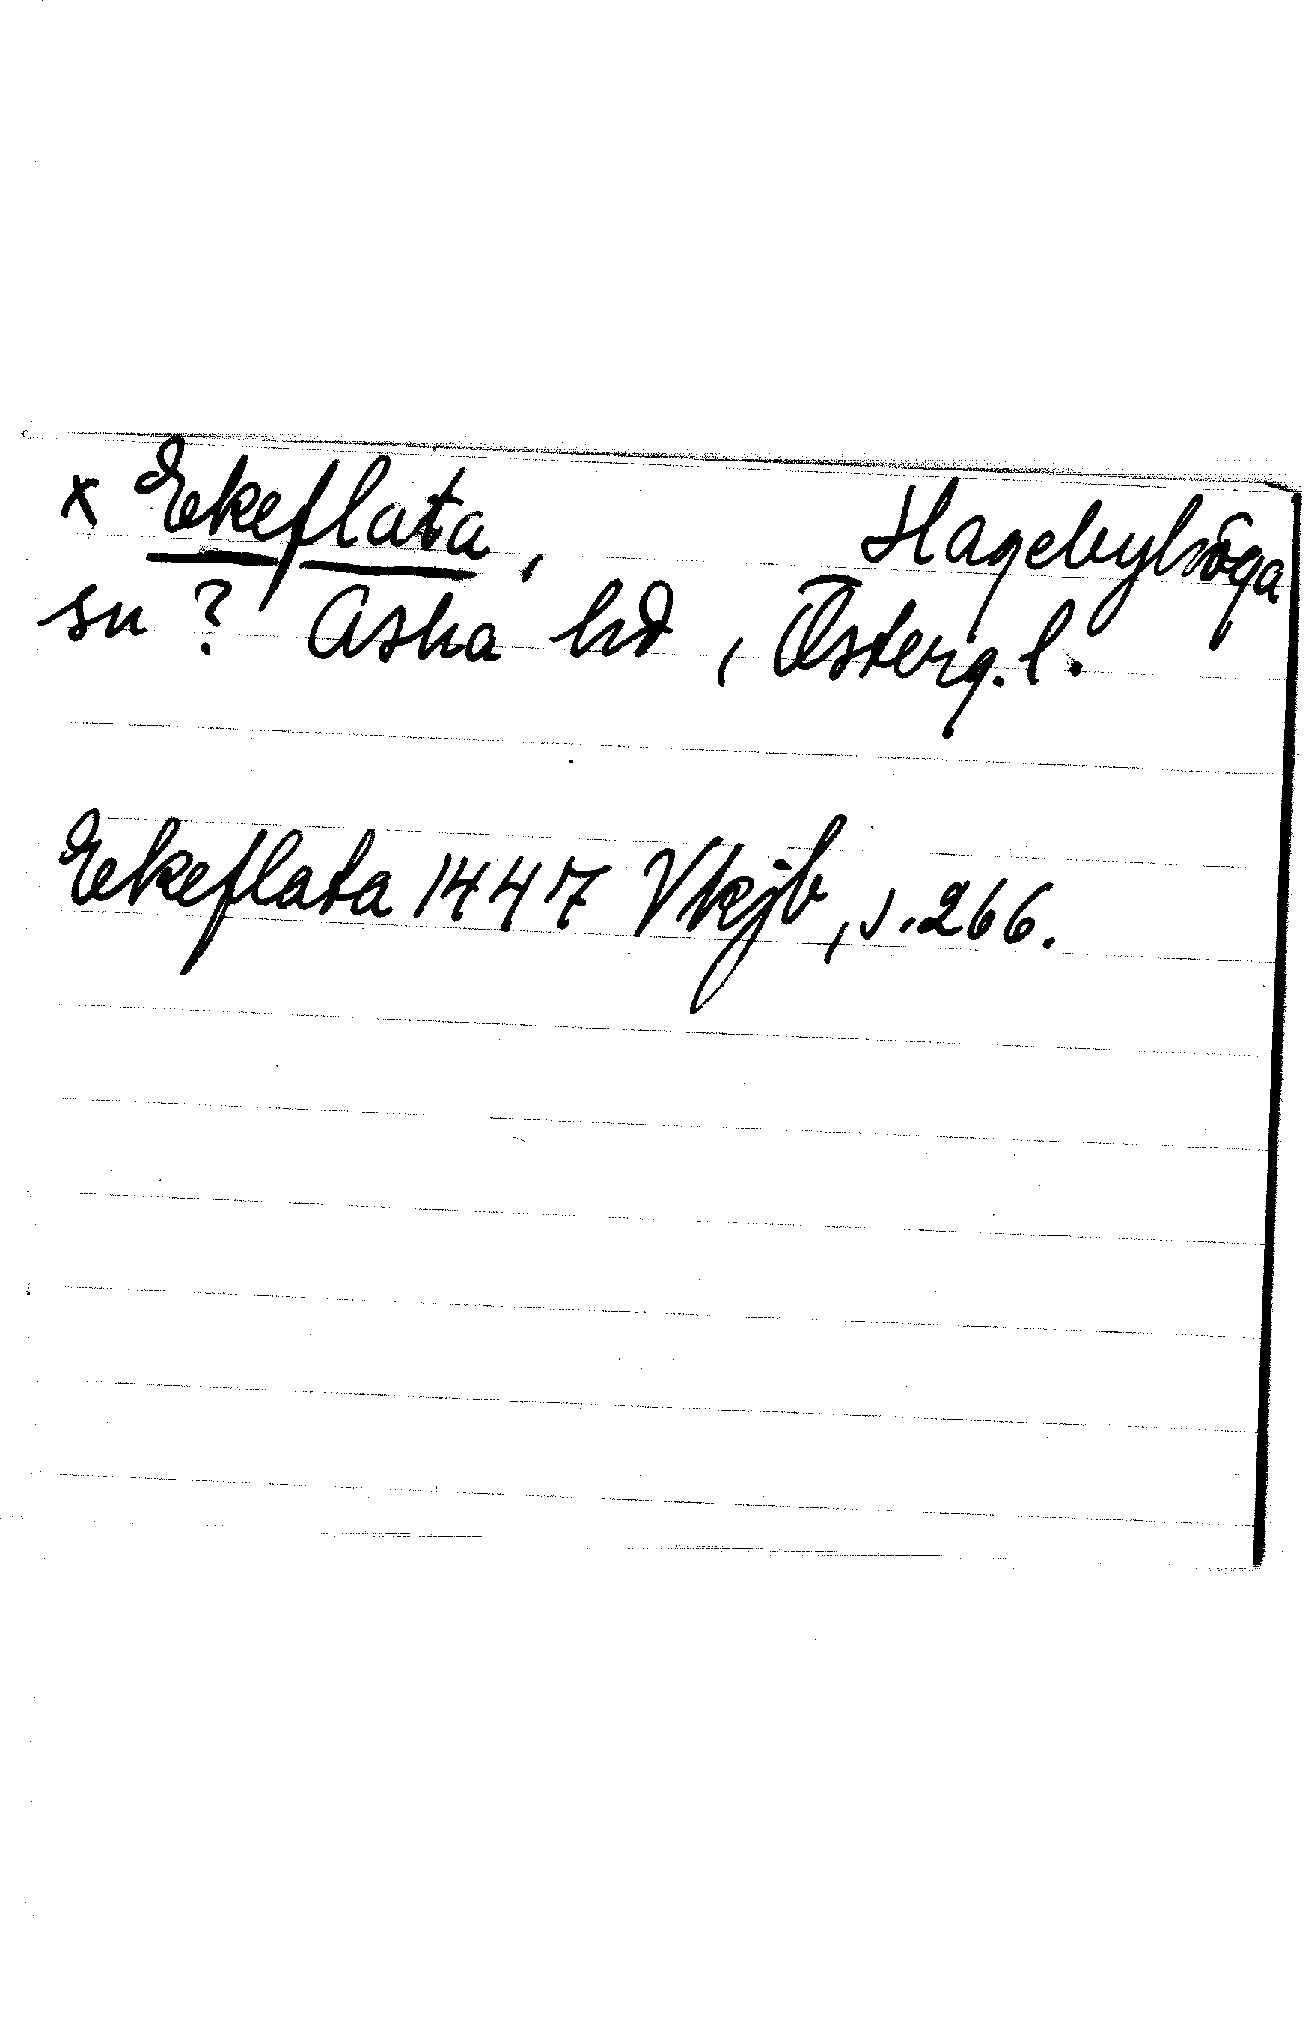 x Ekeflata, Hagebyhöga
sn ? Aska hd, Österg.l.
Ekeflata 1447 Vkjb, s. 266.